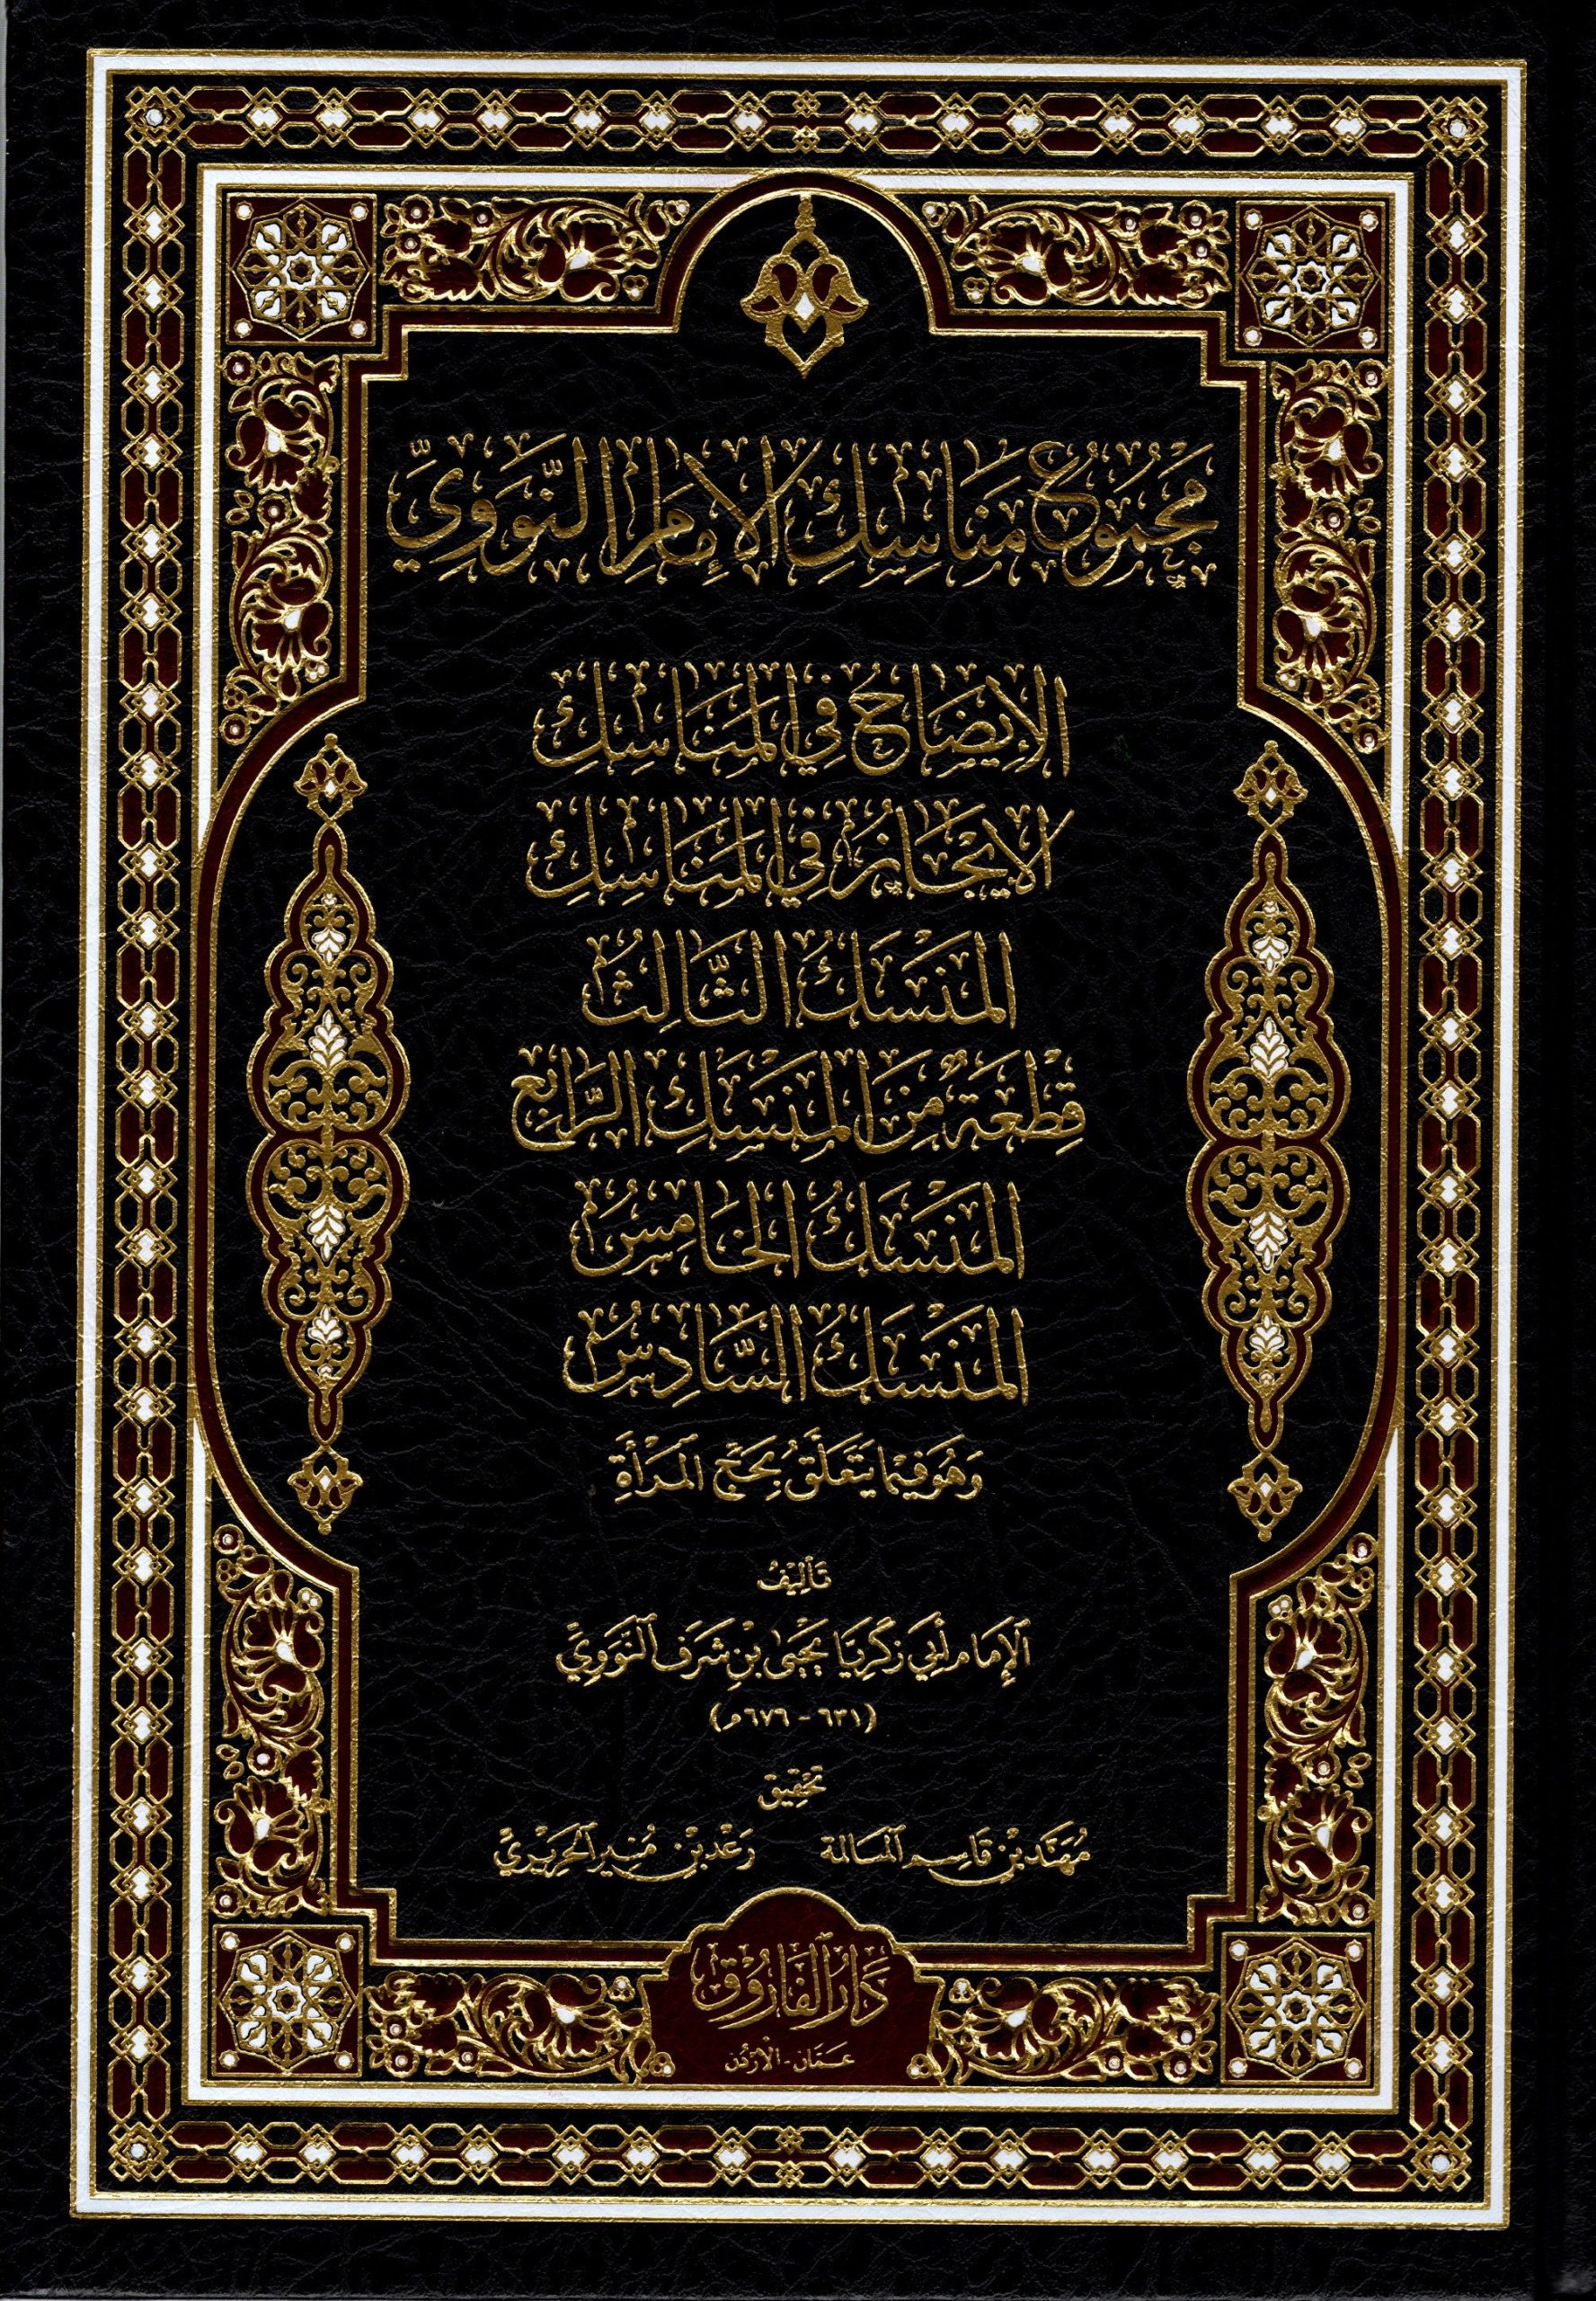 مَجْمُوعُ مَنَاسِكِ الإِمَامِ النَّوَوِيِّ
الإِيضَاحُ فِي المَنَاسِكِ
الإِيجَازُ فِي المَنَاسِكِ
المَنْسَكُ الثَّالِثُ
قِطْعَةٌ مِنَ المَنْسَكِ الرَّابِعِ
المَنْسَكُ الخَامِسُ
المَنْسَكُ السَّادِسُ
وَهُوَ فِيمَا يَتَعَلَّقُ بِحَجِّ المَرْأَةِ
تَأْلِيفُ
الإِمَامِ أَبِي زَكَرِيَّا يَحْيَى بْنِ شَرَفِ النَّوَوِيِّ
(٦٣١ - ٦٧٦هـ)
تَحْقِيق
مُهَنَّد بْن قَاسِم المسالمة رَعْد بْن مُنِير الحَرِيْرِيّ
دَارُ الفَارُوْق
عَمَّان - الأُرْدُن